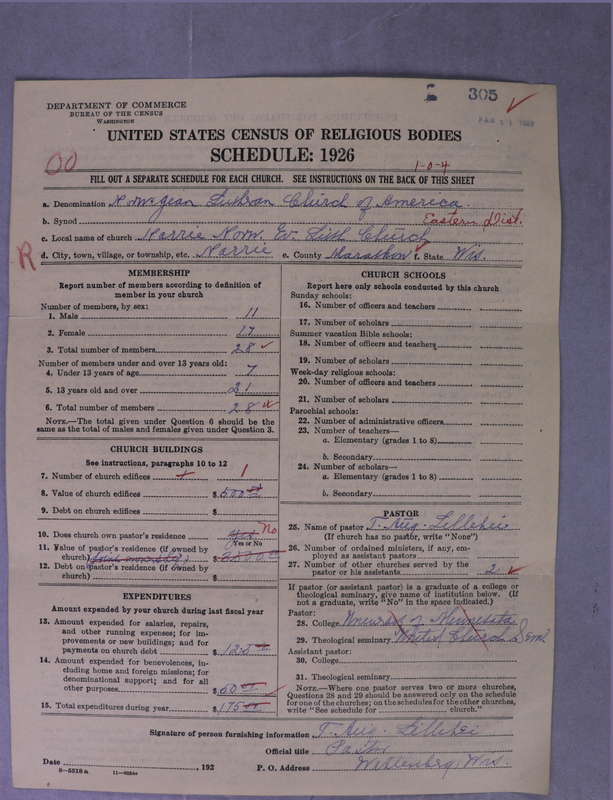 305
FEB 11 1927
DEPARTMENT OF COMMERCE
BUREAU OF THE CENSUS
WASHINGTON
UNITED STATES CENSUS OF RELIGIOUS BODIES
SCHEDULE: 1926
00
1-0-4
FILL OUT A SEPARATE SCHEDULE FOR EACH CHURCH. SEE INSTRUCTIONS ON THE BACK OF THIS SHEET
a. Denomination Norwegian Lutheran Church of America
b. Synod Eastern Dist.
c. Local name of church Narrie Norw. Ev. Luth Church
R
d. City, town, village, or township, etc. Narrie e. County Marathon f. State Wis.
MEMBERSHIP
Report number of members according to definition of
member in your church
Number of members, by sex:
1. Male 11
2. Female 17
3. Total number of members 28
Number of members under and over 13 years old:
4. Under 13 years of age 7
5. 13 years old and over 21
6. Total number of members 28
NOTE.—The total given under Question 6 should be
same as the total of males and females given under Question 3.
CHURCH BUILDINGS
See instructions, paragraphs 10 to 12
7. Number of church edifices 1
8. Value of church edifices $ 500
9. Debt on church edifices $
10. Does church own pastor's residence Yes No
Yes or No
11. Value of pastor's residence (if owned by
church) (joint ownership) $
12. Debt on pastor's residence (if owned by
church) $
EXPENDITURES
Amount expended by your church during last fiscal year
13. Amount expended for salaries, repairs,
and other running expenses; for im-
provements or new buildings; and for
payments on church debt $ 125
14. Amount expended for benevolences, in-
cluding home and foreign missions; for
denominational support; and for all
other purposes $ 50
15. Total expenditures during year $ 175
CHURCH SCHOOLS
Report here only schools conducted by this church
Sunday schools:
16. Number of officers and teachers
17. Number of scholars
Summer vacation Bible schools:
18. Number of officers and teachers
19. Number of scholars
Week-day religious schools:
20. Number of officers and teachers
21. Number of scholars
Parochial schools:
22. Number of administrative officers
23. Number of teachers—
a. Elementary (grades 1 to 8)
b. Secondary
24. Number of scholars—
a. Elementary (grades 1 to 8)
b. Secondary
PASTOR
25. Name of pastor T. Aug. Lillehei
(If church has no pastor, write "None")
26. Number of ordained ministers, if any, em-
ployed as assistant pastors
27. Number of other churches served by the
pastor or his assistants 2
If pastor (or assistant pastor) is a graduate of a college or
theological seminary, give name of institution below. (If
not a graduate, write "No" in the space indicated.)
Pastor:
28. College University of Minnesota
29. Theological seminary United Church Sem.
Assistant pastor:
30. College
31. Theological seminary
NOTE.—Where one pastor serves two or more churches,
Questions 28 and 29 should be answered only on the schedule
for one of the churches; on the schedules for the other churches,
write "See schedule for church."
Signature of person furnishing information T. Aug. Lillehei
Official title Pastor
Date , 192 P. O. Address Wittenberg Wis.
8—5518a 11—9054a